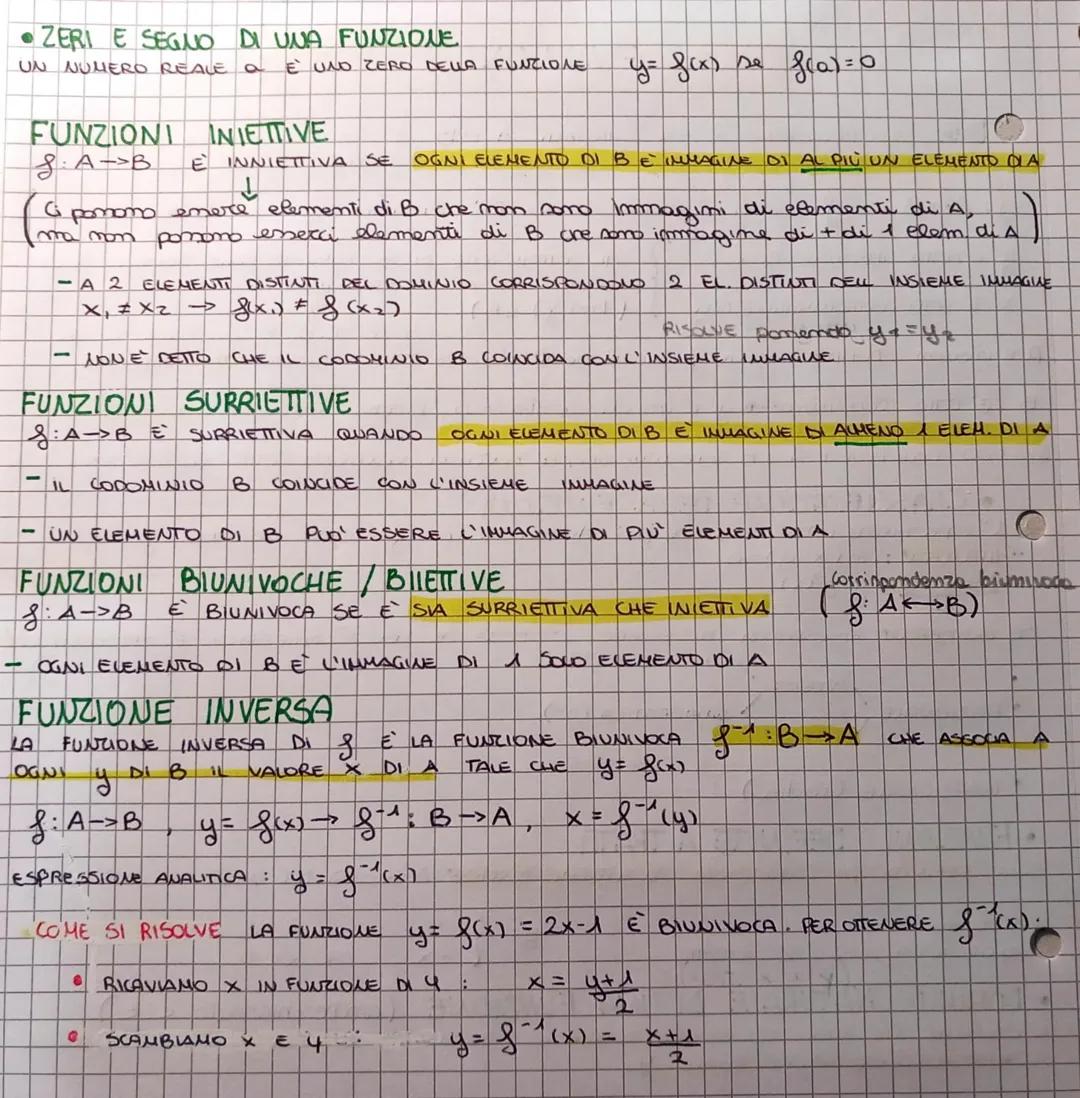 • ZERI E SEGNO DI UNA FUNZIONE
UN NUMERO REALE a È UNO ZERO DELLA FUNZIONE y= f(x) se f(a)=0
FUNZIONI INIETTIVE
f: A->B È INNIETTIVA SE OGNI ELEMENTO DI B È IMMAGINE DI AL PIÙ UN ELEMENTO DI A
↓
(Ci possono essere elementi di B che non sono immagini di elementi di A,
ma non possono esserci elementi di B che sono immagine di + di 1 elem di A)
- A 2 ELEMENTI DISTINTI DEL DOMINIO CORRISPONDONO 2 EL. DISTINTI DELL INSIEME IMMAGINE
x₁ ≠ x₂ → f(x₁) ≠ f(x₂)
RISOLVE ponendo y₁=y₂
- NON È DETTO CHE IL CODOMINIO B COINCIDA CON L'INSIEME IMMAGINE
FUNZIONI SURRIETTIVE
f: A->B È SURRIETTIVA QUANDO OGNI ELEMENTO DI B È IMMAGINE DI ALMENO 1 ELEM. DI A
- IL CODOMINIO B COINCIDE CON L'INSIEME IMMAGINE
- UN ELEMENTO DI B PUO' ESSERE L'IMMAGINE DI PIU' ELEMENTI DI A
FUNZIONI BIUNIVOCHE / BIIETTIVE
corrispondenza biunivoca
f: A->B È BIUNIVOCA SE È SIA SURRIETTIVA CHE INIETTIVA (f: A<->B)
- OGNI ELEMENTO DI B È L'IMMAGINE DI 1 SOLO ELEMENTO DI A
FUNZIONE INVERSA
LA FUNZIONE INVERSA DI f È LA FUNZIONE BIUNIVOCA f⁻¹: B->A CHE ASSOCIA A
OGNI y DI B IL VALORE x DI A TALE CHE y= f(x)
f: A->B , y= f(x) → f⁻¹: B->A , x = f⁻¹(y)
ESPRESSIONE ANALITICA : y = f⁻¹(x)
COME SI RISOLVE LA FUNZIONE y= f(x) = 2x-1 È BIUNIVOCA. PER OTTENERE f⁻¹(x):
• RICAVIAMO x IN FUNZIONE DI y : x = y+1/2
• SCAMBIAMO x E y : y= f⁻¹(x) = x+1/2